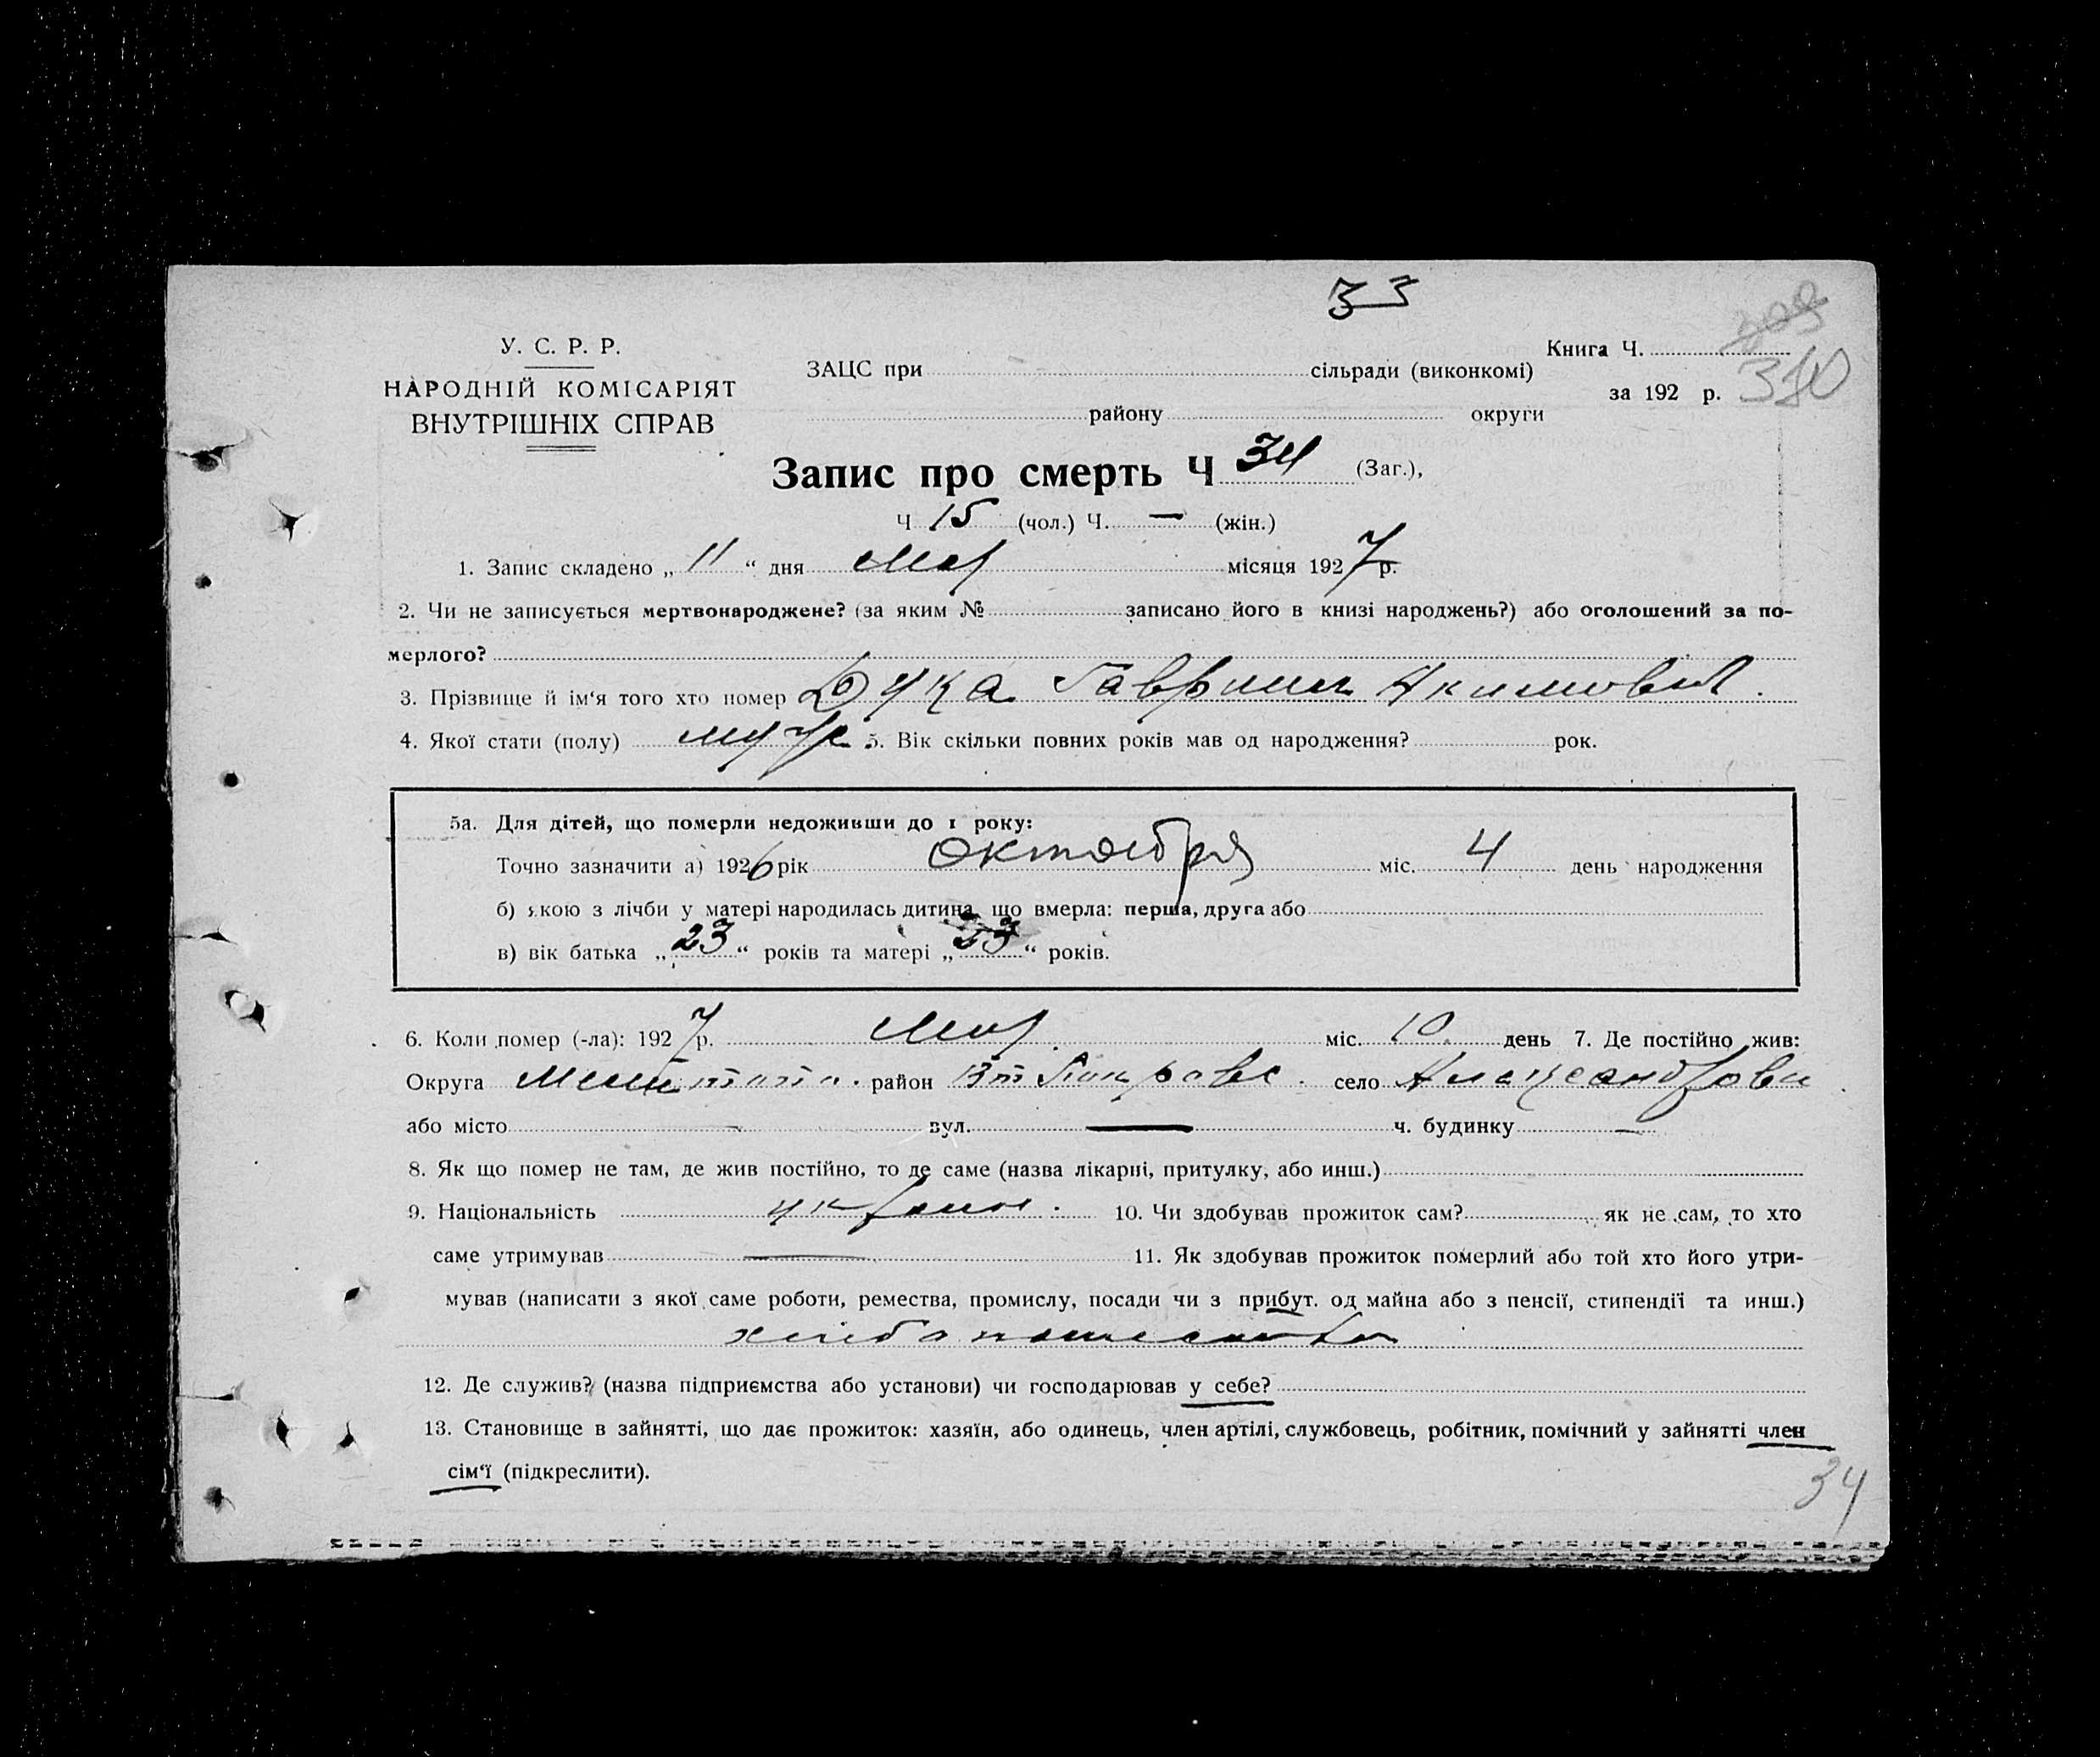 33
309
310
У. С. Р. Р.
НАРОДНІЙ КОМІСАРІЯТ
ВНУТРІШНІХ СПРАВ
ЗАЦС при сільради (виконкомі)
району округи
Книга Ч.
за 192 р.
Запис про смерть Ч 34 (Заг.),
Ч 15 (чол.) Ч. — (жін.)
1. Запис складено „ 11 “ дня Мая місяця 1927 р.
2. Чи не записується мертвонароджене? (за яким № записано його в книзі народжень?) або оголошений за по-
мерлого?
3. Прізвище й ім‘я того хто помер Дука Гавриил Акимович.
4. Якої стати (полу) муж 5. Вік скільки повних років мав од народження? рок.
5а. Для дітей, що померли недоживши до 1 року:
Точно зазначити а) 1926 рік октября міс. 4 день народження
б) якою з лічби у матері народилась дитина, що вмерла: перша, друга або
в) вік батька „ 23 “ років та матері „ 23 “ років.
6. Коли помер (-ла): 1927 р. Мая міс. 10 день 7. Де постійно жив:
Округа район село Александровки
або місто — вул. — ч. будинку —
8. Як що помер не там, де жив постійно, то де саме (назва лікарні, притулку, або инш.)
9. Національність украин. 10. Чи здобував прожиток сам? як не сам, то хто
саме утримував — 11. Як здобував прожиток померлий або той хто його утри-
мував (написати з якої саме роботи, ремества, промислу, посади чи з прибут. од майна або з пенсії, стипендії та инш.)
12. Де служив? (назва підприємства або установи) чи господарював у себе?
13. Становище в зайнятті, що дає прожиток: хазяїн, або одинець, член артілі, службовець, робітник, помічний у зайнятті член
сім‘ї (підкреслити).
34